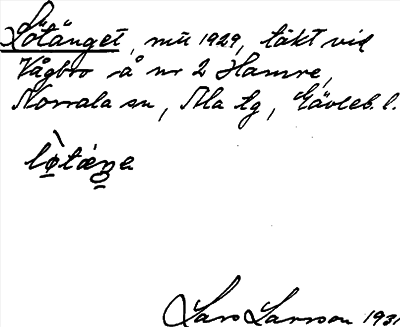 Lötänget, mu 1929, täkt vid
Vågbro å nr 2 Hamre,
Norrala sn, Ala tg, Gävleb. l.
lø̀tæŋe
Lars Larsson 1931